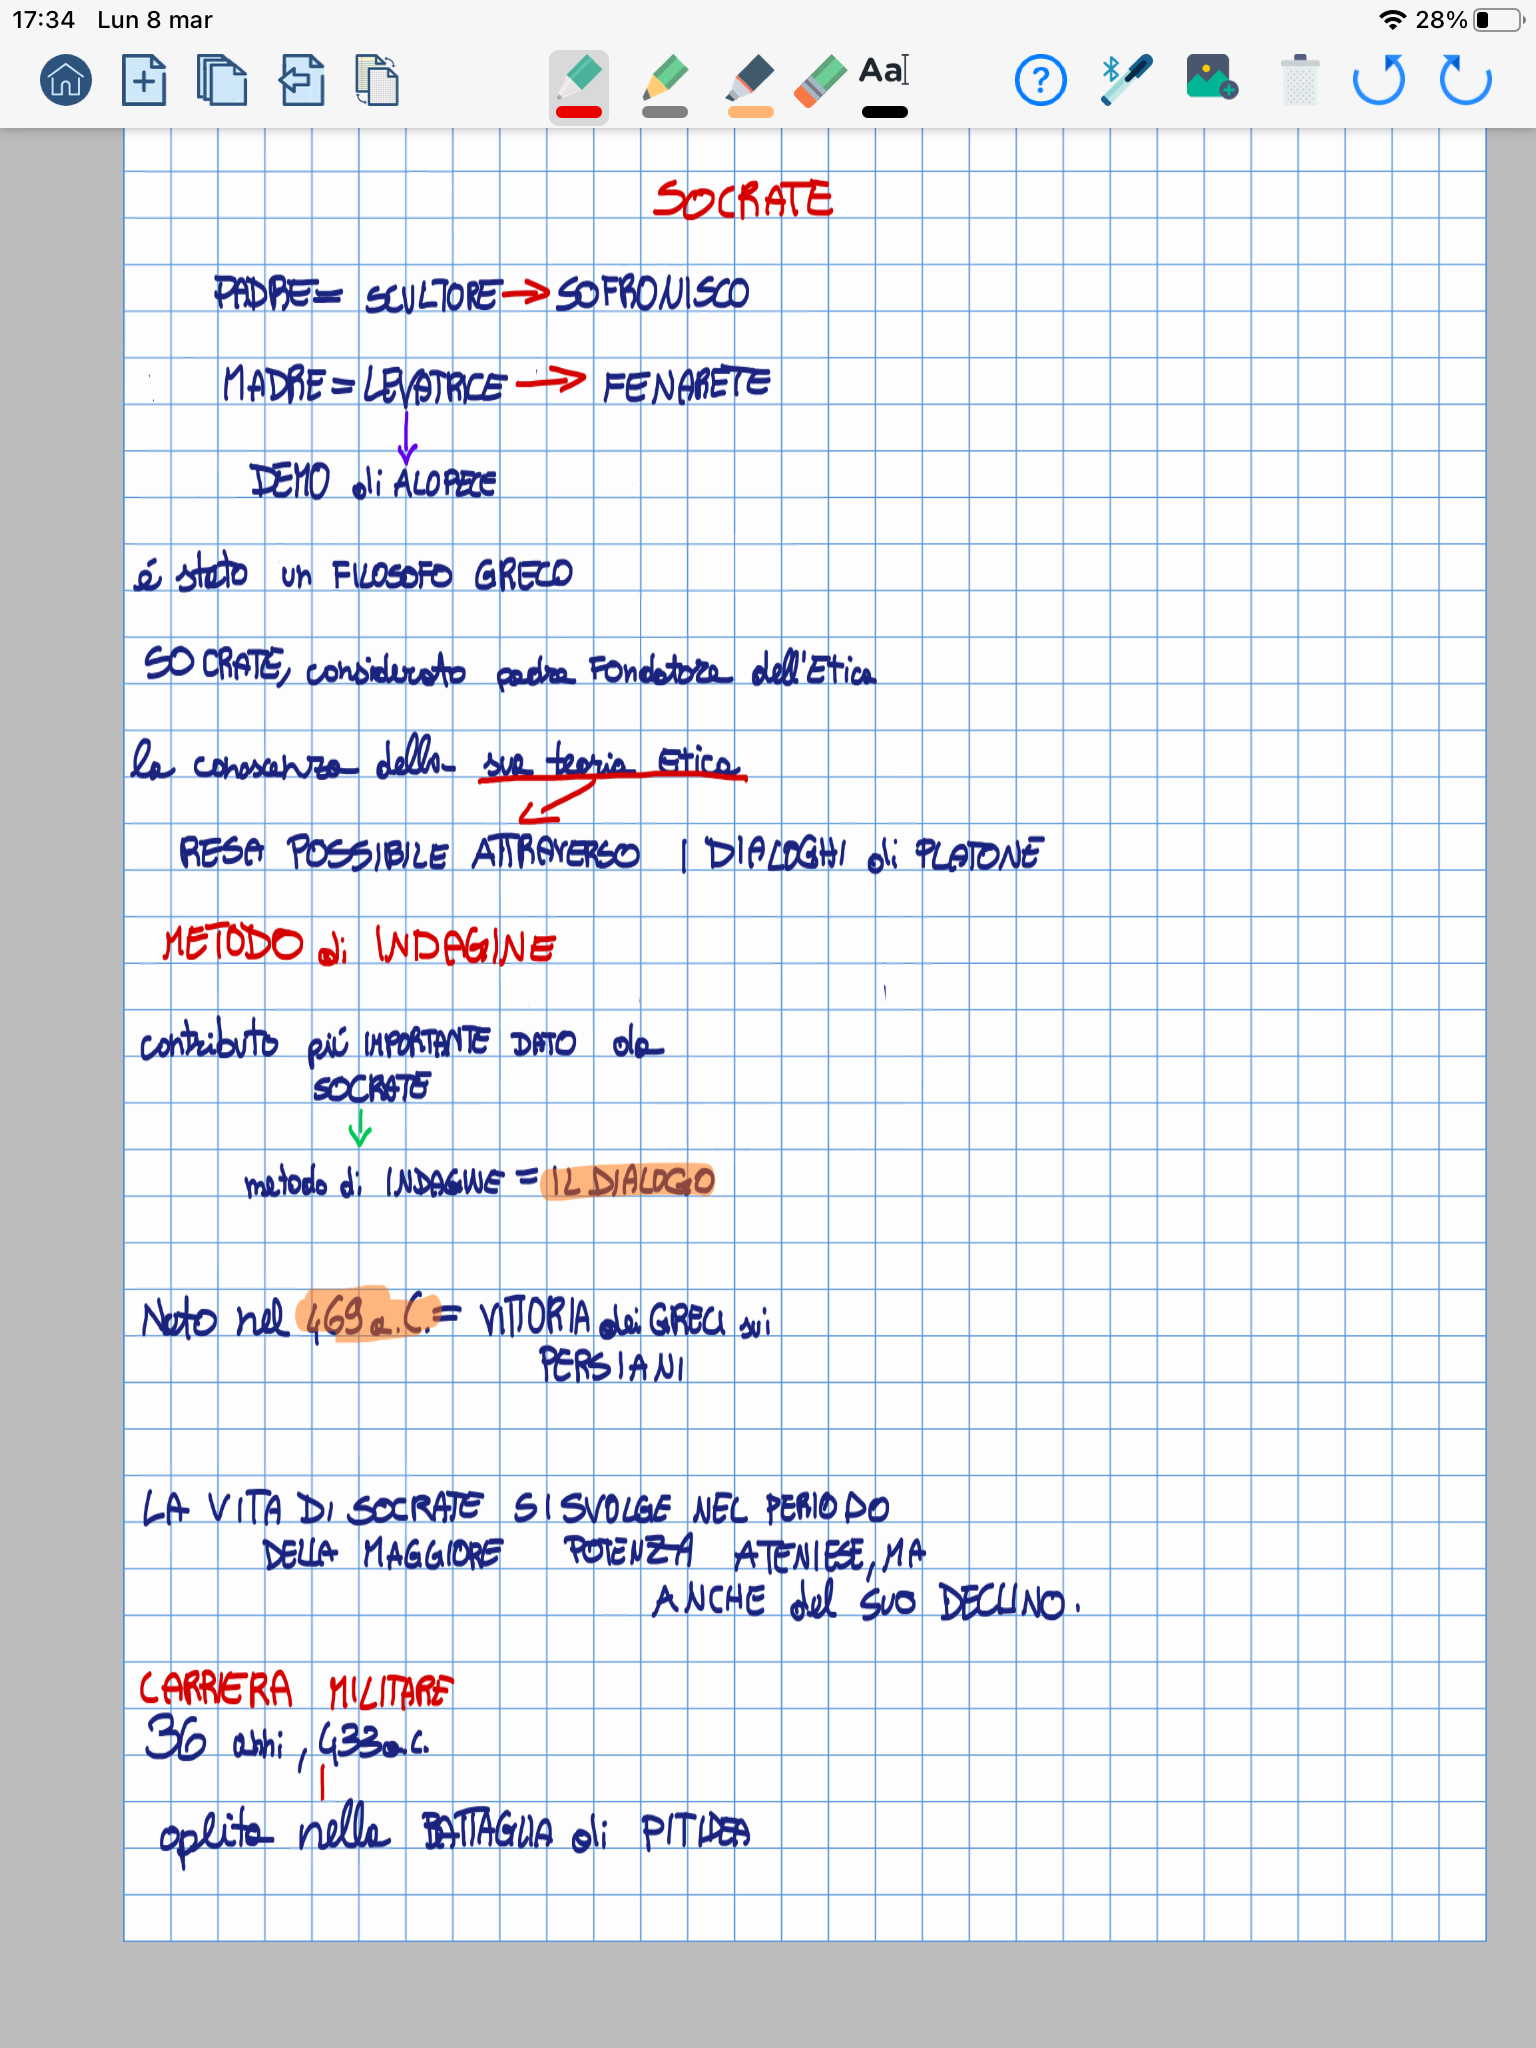 17:34 Lun 8 mar 28%
Aa
?
SOCRATE
PADRE= SCULTORE → SOFRONISCO
MADRE= LEVATRICE → FENARETE
DEMO di ALOPECE
é stato un FILOSOFO GRECO
SOCRATE, considerato padre Fondatore dell'Etica
la conoscenza della sua teoria Etica
RESA POSSIBILE ATTRAVERSO I DIALOGHI di PLATONE
METODO di INDAGINE
contributo più IMPORTANTE DATO da
SOCRATE
metodo di INDAGINE = IL DIALOGO
Nato nel 469 a.C. = VITTORIA dei GRECI sui
PERSIANI
LA VITA DI SOCRATE SI SVOLGE NEL PERIODO
DELLA MAGGIORE POTENZA ATENIESE, MA
ANCHE del SUO DECLINO.
CARRIERA MILITARE
36 anni, 433 a.C.
oplita nella BATTAGLIA di PITIDEA